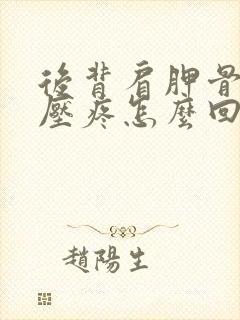 後背肩胛骨
壓疼怎麼回
趙陽生